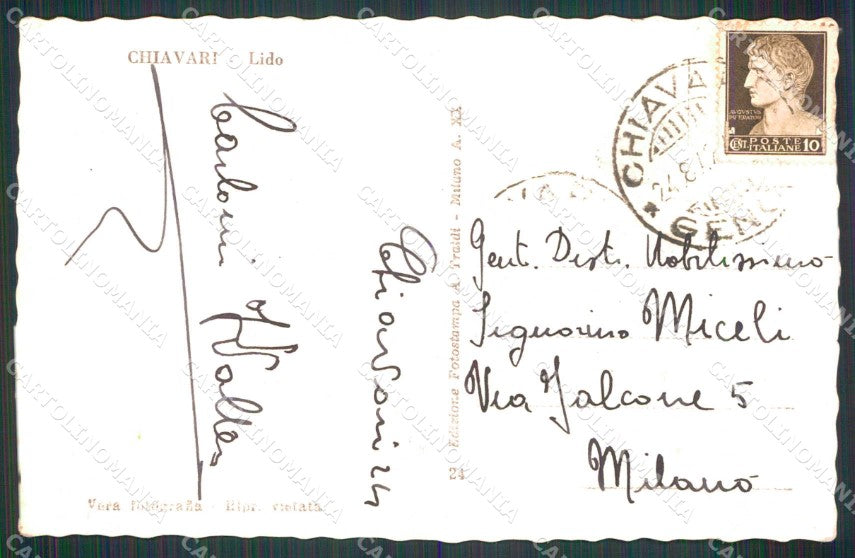 CHIAVARI Lido
Carloni Walter
Chiavari 24
24 Edizione Fotostampa A. Traldi - Milano A. XX
Vera fotografia - Ripr. vietata
AVGVSTVS
IMPERATOR
POSTE
CENT. ITALIANE 10
CHIAVA
24.8.
GENO
Gent. Dist. Nobilissimo
Signorino Miceli
Via Falcone 5
Milano
CARTOLINOMANIA